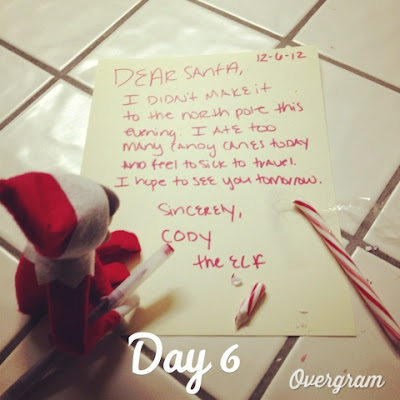 12-6-12
DEAR SANTA,
I DIDN'T MAKE IT
to the NORTH POLE this
evening. I Ate too
MANY CANDY CANES TODAY
AND FEEL to SICK to TRAVEL.
I hope to see you tomorrow.
SINCERELY,
CODY
the ELF
Day 6
Overgram